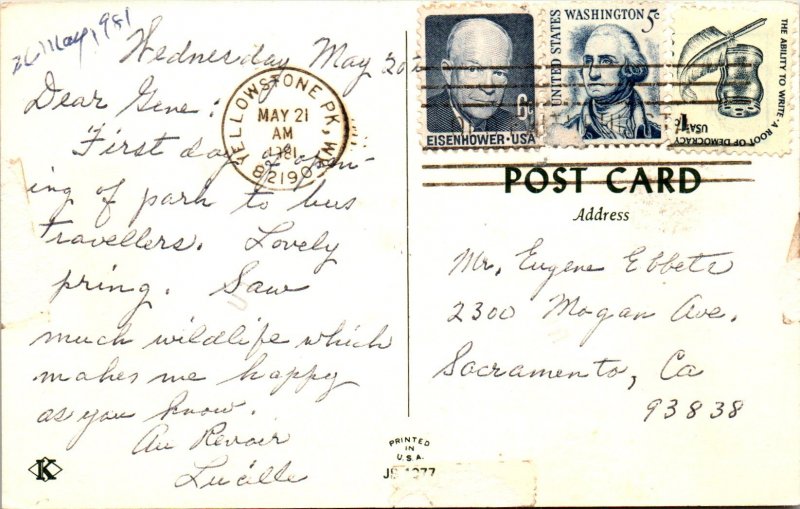 20 May, 1981
Wednesday May 20th
Dear Gene:
First day of open-
ing of park to bus
travellers. Lovely
pring. Saw
much wildlife which
makes me happy
as you know.
Au Revoir
Lucille
K
YELLOWSTONE PK, W
MAY 21
AM
1981
82190
EISENHOWER·USA
UNITED STATES
WASHINGTON 5c
THE ABILITY TO WRITE·A ROOT OF DEMOCRACY
USA 1c
POST CARD
Address
Mr. Eugene Ebbets
2300 Mogan Ave.
Sacramento, Ca
93838
PRINTED
IN
U.S.A.